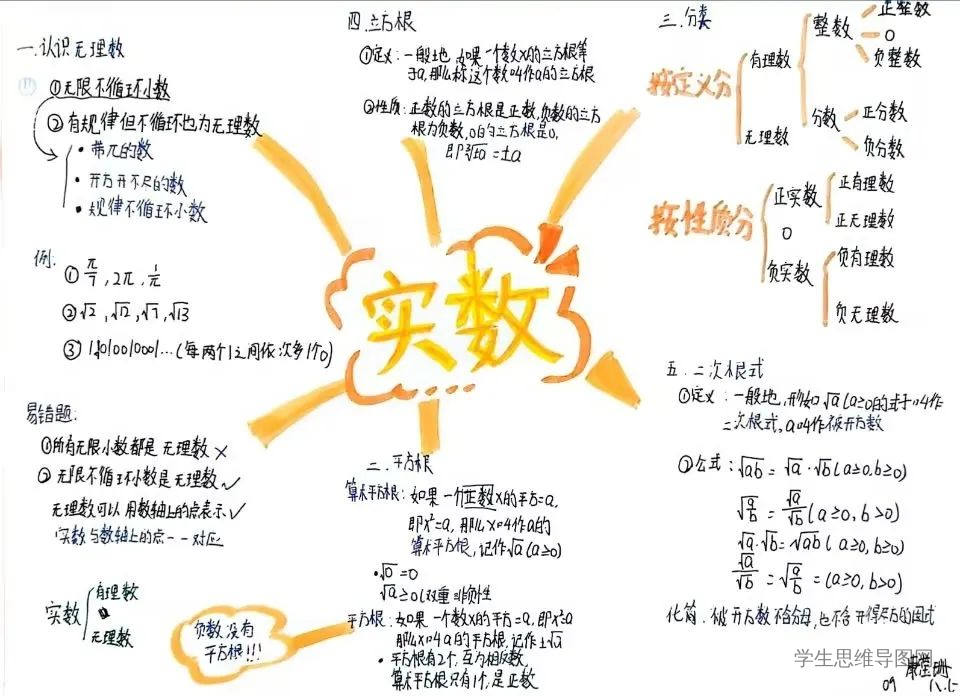 一.认识无理数
①无限不循环小数
②有规律但不循环也为无理数
• 带π的数
• 开方开不尽的数
• 规律不循环小数
例:
① π/7, 2π, 1/π
② √2, √12, √7, √13
③ 1.1010010001...(每两个1之间依次多1个0)
易错题:
①所有无限小数都是无理数 ×
② 无限不循环小数是无理数 ✓
无理数可以用数轴上的点表示 ✓
实数与数轴上的点一一对应
实数
有理数
0
无理数
四.立方根
①定义:一般地,如果一个数x的立方根等
于a,那么称这个数叫作a的立方根
②性质:正数的立方根是正数,负数的立方
根为负数,0的立方根是0.
即³√±a = ±a
实数
二.平方根
算术平方根:如果一个正数x的平方=a,
即x²=a,那么x叫作a的
算术平方根,记作√a(a≥0)
•√0=0
√a≥0(双重非负性
平方根:如果一个数x的平方=a,即x²=a
那么x叫a的平方根,记作±√a
• 平方根有2个,互为相反数,
算术平方根只有1个,是正数
负数没有
平方根!!!
三.分类
按定义分
有理数
整数
正整数
0
负整数
分数
正分数
负分数
无理数
按性质分
正实数
正有理数
正无理数
0
负实数
负有理数
负无理数
五.二次根式
①定义:一般地,形如√a(a≥0的式子叫作
二次根式,a叫作被开方数
②公式:√ab = √a·√b(a≥0,b≥0)
√(a/b) = √a/√b (a≥0, b>0)
√a·√b=√ab (a≥0, b≥0)
√a/√b = √(a/b) = (a≥0, b>0)
化简:被开方数不含分母,也不含开得尽方的因式
学生思维导图网
09